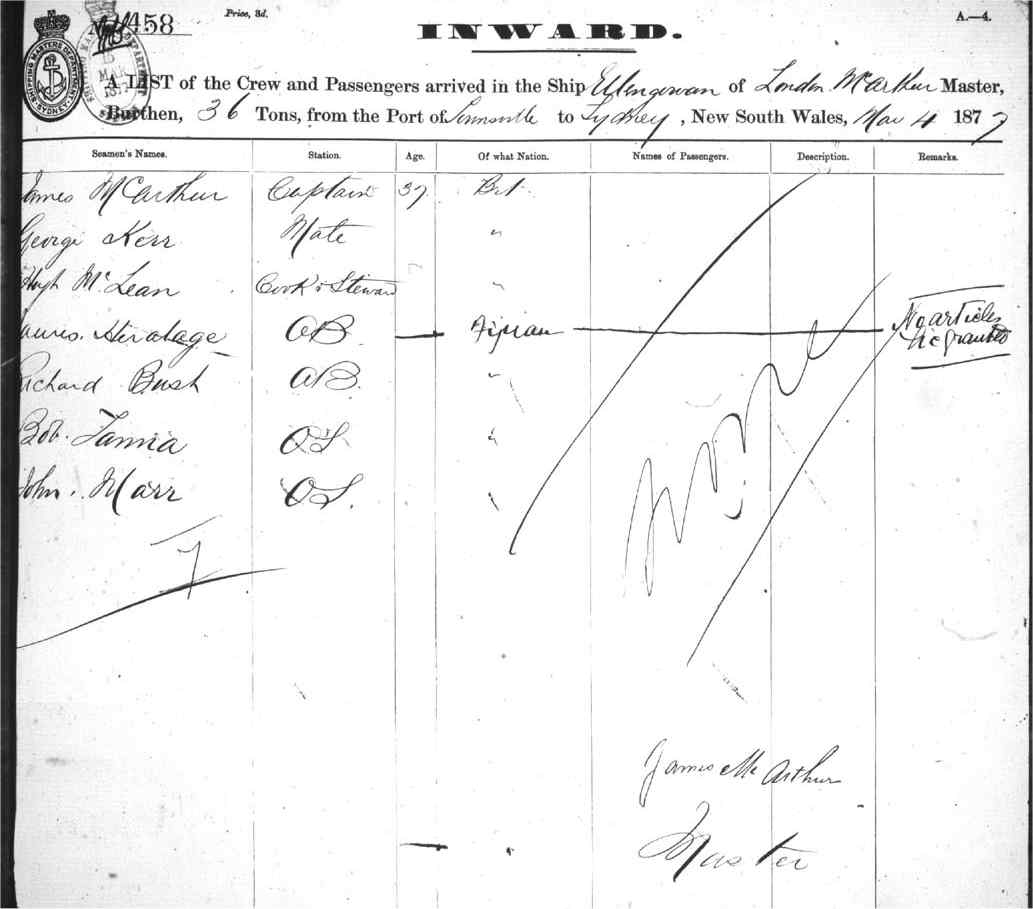 458
Price, 3d.
A.—4.
INWARD.
SHIPPING MASTERS DEPARTMENT SYDNEY
A LIST of the Crew and Passengers arrived in the Ship Ellengowan of London McArthur Master,
Burthen, 36 Tons, from the Port of to Sydney, New South Wales, Mar 4 1877
Seamen's Names. Station. Age. Of what Nation. Names of Passengers. Description. Remarks.
James McArthur Captain 37 Brt
George Kerr Mate "
Hugh McLean Cook & Steward "
James AB Fijian No articles
granted
Richard Bush AB "
Bob. Tanna OS "
John. Marr OS. "
7
None
James McArthur
Master